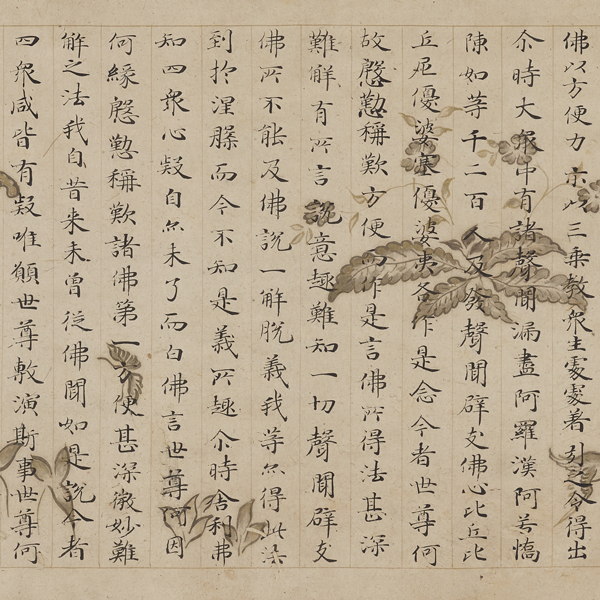 佛以方便力示以三乘教衆生處處著引之令得出
尒時大衆中有諸聲聞漏盡阿羅漢阿若憍
陳如等千二百人及發聲聞辟支佛心比丘比
丘尼優婆塞優婆夷各作是念今者世尊何
故慇懃稱歎方便而作是言佛所得法甚深
難解有所言說意趣難知一切聲聞辟支
佛所不能及佛說一解脱義我等亦得此法
到於涅槃而今不知是義所趣尒時舍利弗
知四衆心疑自亦未了而白佛言世尊何因
何緣慇懃稱歎諸佛第一方便甚深微妙難
解之法我自昔来未曾從佛聞如是說今者
四衆咸皆有疑唯願世尊敷演斯事世尊何